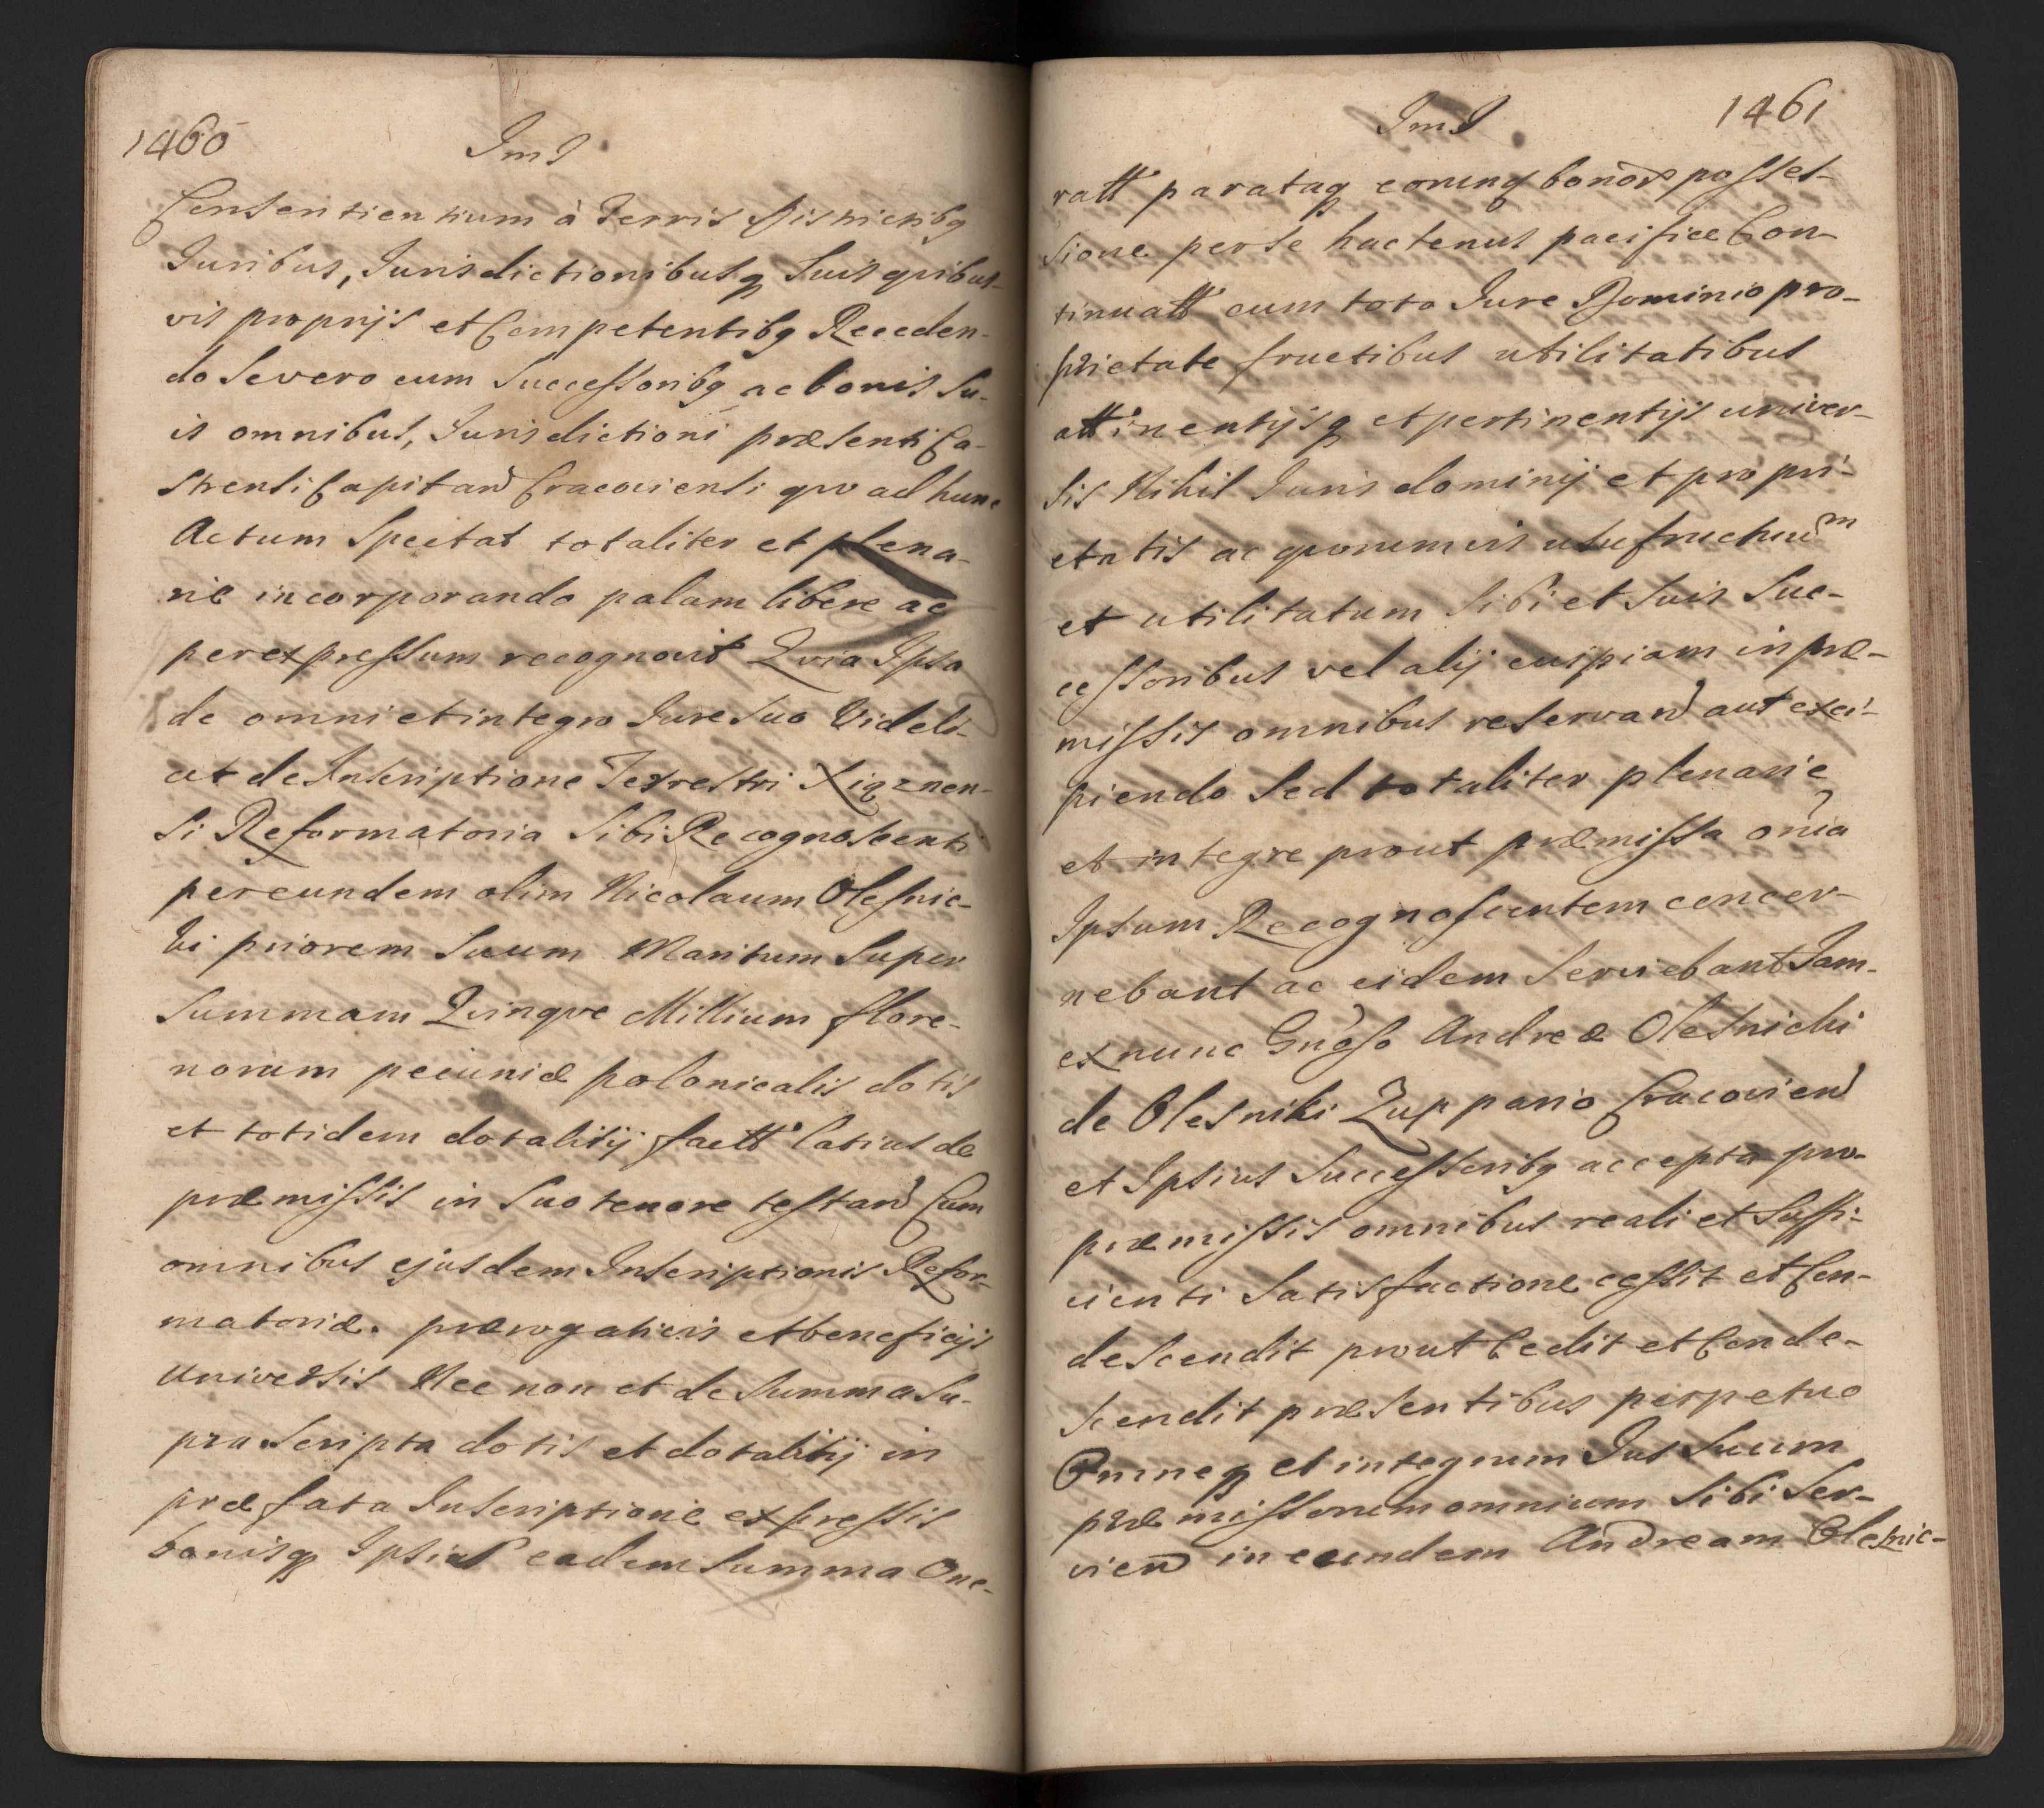 1460
ImJ
Consentientium à Terris Districtibq
Juribus, Jurisdictionibusq Suis quibus-
vis proprijs et Competentibq Receden-
do Severo cum Successoribq ac bonis Su-
is omnibus, Jurisdictioni præsenti Ca-
strensi Capitan Cracoviensi qvo ad hunc
Actum Spectat totaliter et plena-
rie incorporando palam libere ac
perexpressum recognovit Qvia Ipsa
de omni et integro Jure Suo Videli-
cet de Inscriptione Terrestri Xiąznen-
si Reformatoria Sibi Recognoscenti
per eundem olim Nicolaum Olesnic-
ki priorem Suum Maritum Super
Summam Qvinqve Millium flore-
norum pecuniæ polonicalis dotis
et totidem dotalitij factt latius de
præmissis in Suo tenore testan Cum
omnibus ejusdem Inscriptionis Refor-
matoriæ. prærogativis et beneficijs
Universis Nec non et de Summa Su-
pra Scripta dotis et dotalitij in
præfata Inscriptione expressis
bonisq Ipsius eadem Summa One-
1461
ImJ
ratt parataq eorunq bonor posses-
sione per Se hactenus pacifice Con-
tinuatt cum toto Jure Dominio pro-
prietate fructibus utilitatibus
attinentijsq et pertinentijs univer-
sis Nihil Juris dominij et propri-
etatis ac qvorumvis usufructuum
et utilitatum Sibi et Suis Suc-
cessoribus vel alij cuipiam in præ-
missis omnibus reservan aut exci-
piendo Sed totaliter plenarie
et integre prout præmissa omia
Ipsam Recognoscentem concer-
nebant ac eidem Serviebant Jam
ex nunc Gnoso Andreæ Olesnicki
de Olesniki Zuppario Cracovien
et Ipsius Successoribq accepta pro
præmissis omnibus reali et Suffi-
cienti Satisfactione cessit et Con-
descendit prout Cedit et Conde-
scendit præsentibus perpetuo
Omneq et integrum Jus Suum
præmissorum omnium Sibi Ser-
vien in eundem Andream Olesnic-